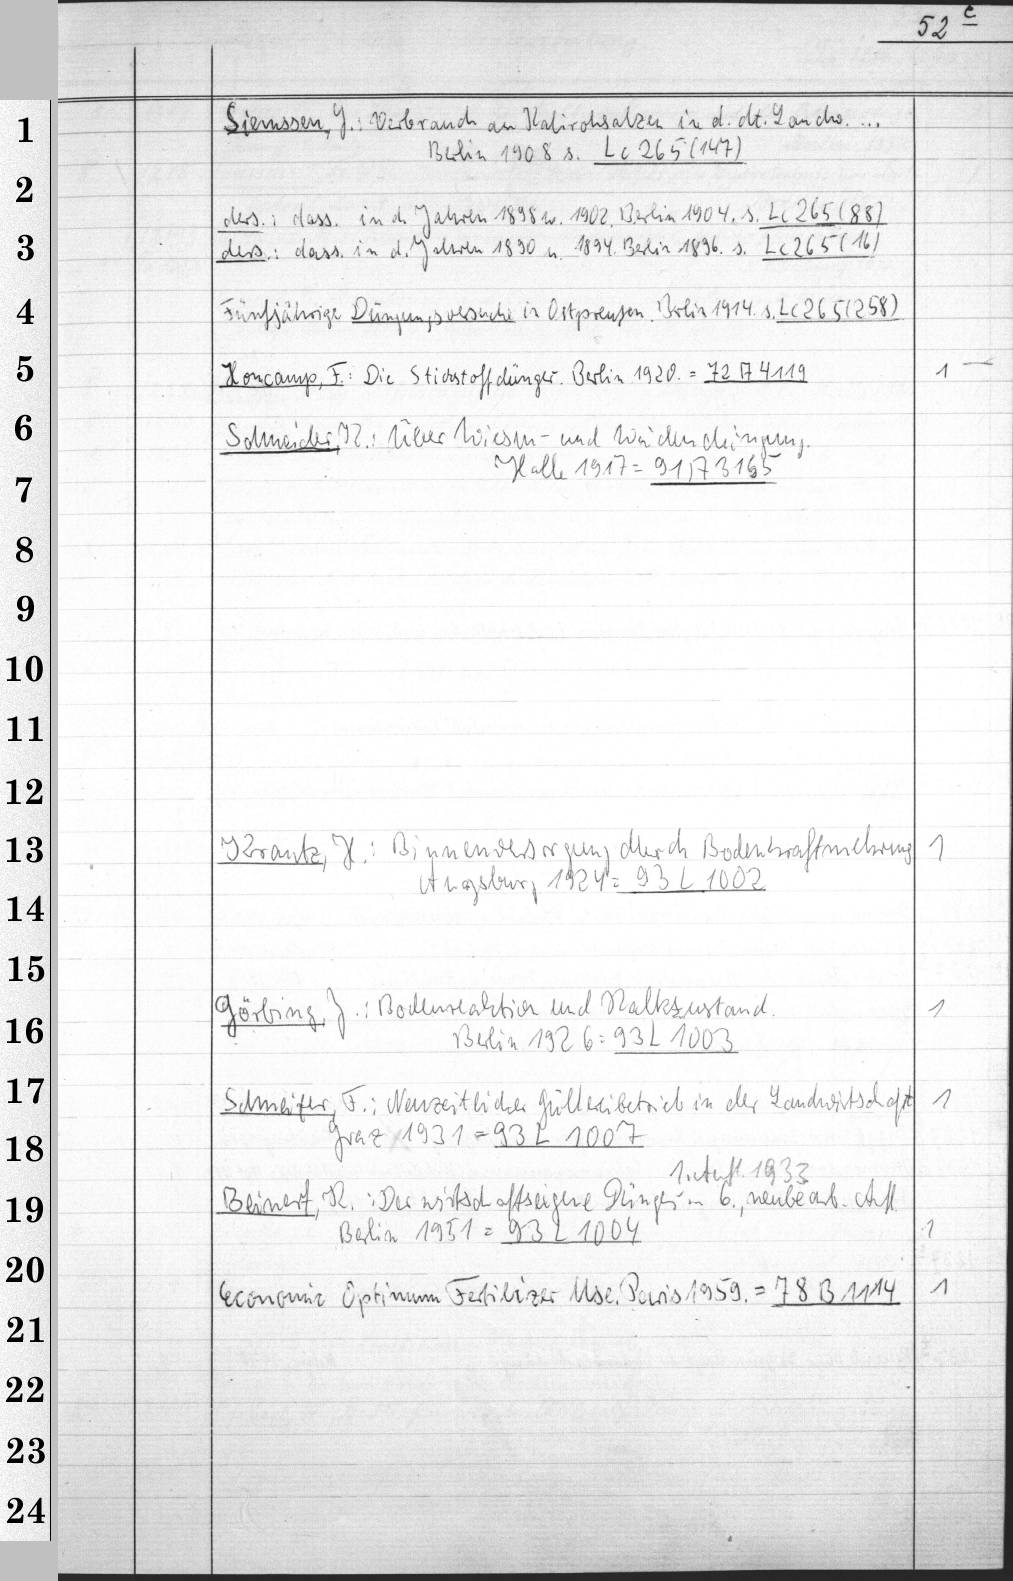 52 c
1 Siemssen, G.: Verbrauch an Kalirohsalzen in d. dt. Landw. ...
Berlin 1908 s. Lc 265 (147)
2
ders.: dass. in d. Jahren 1898 u. 1902. Berlin 1904. s. Lc 265 (88)
3 ders.: dass. in d. Jahren 1890 u. 1894. Berlin 1896. s. Lc 265 (16)
4 Fünfjährige Düngungsversuche in Ostpreußen. Berlin 1914. s. Lc 265 (258)
5 Honcamp, F.: Die Stickstoffdünger. Berlin 1920. = 72 4119 1 —
6 Schneider, K.: Über Wiesen- und Weidendüngung.
Halle 1917 = 91,73165
7
8
9
10
11
12
13 Krantz, H.: Binnenversorgung durch Bodenkraftmehrung 1
Augsburg 1924 = 93 L 1002
14
15
16 Görbing, J.: Bodenreaktion und Kalkzustand. 1
Berlin 1926 = 93 L 1003
17 Schneiter, F.: Neuzeitlicher Güllereibetrieb in der Landwirtschaft 1
18 Graz 1931 = 93 L 1007
1. Aufl. 1933
19 Beinert, K.: Der wirtschaftseigene Dünger 6., neubearb. Aufl.
Berlin 1951 = 93 L 1004 1
20 Economic Optimum Fertilizer Use. Paris 1959. = 78 B 1114 1
21
22
23
24